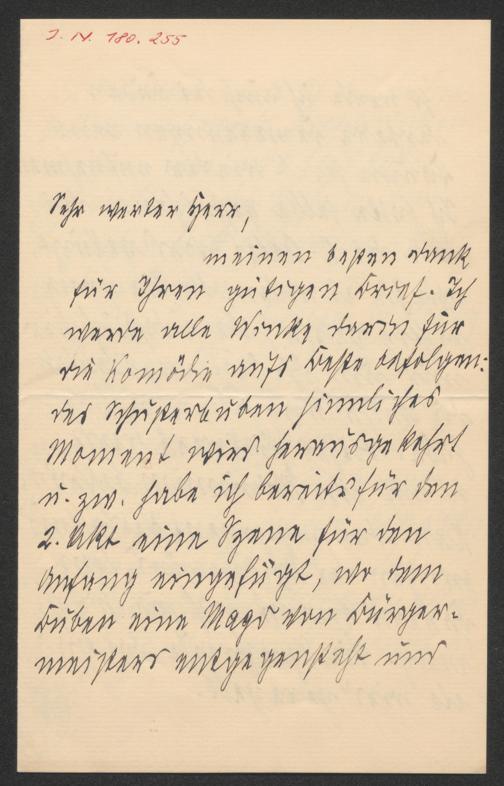 I. N. 180.255
Sehr werter Herr,
meinen besten Dank
für Ihren gütigen Brief. Ich
werde alle Winke darin für
die Komödie aufs Beste befolgen:
des Schusterbuben sinnliches
Moment wird herausgekehrt
u. zw. habe ich bereits für den
2. Akt eine Szene für den
Anfang eingefügt, wo dem
Buben eine Magd von Bürger-
meisters entgegensteht und